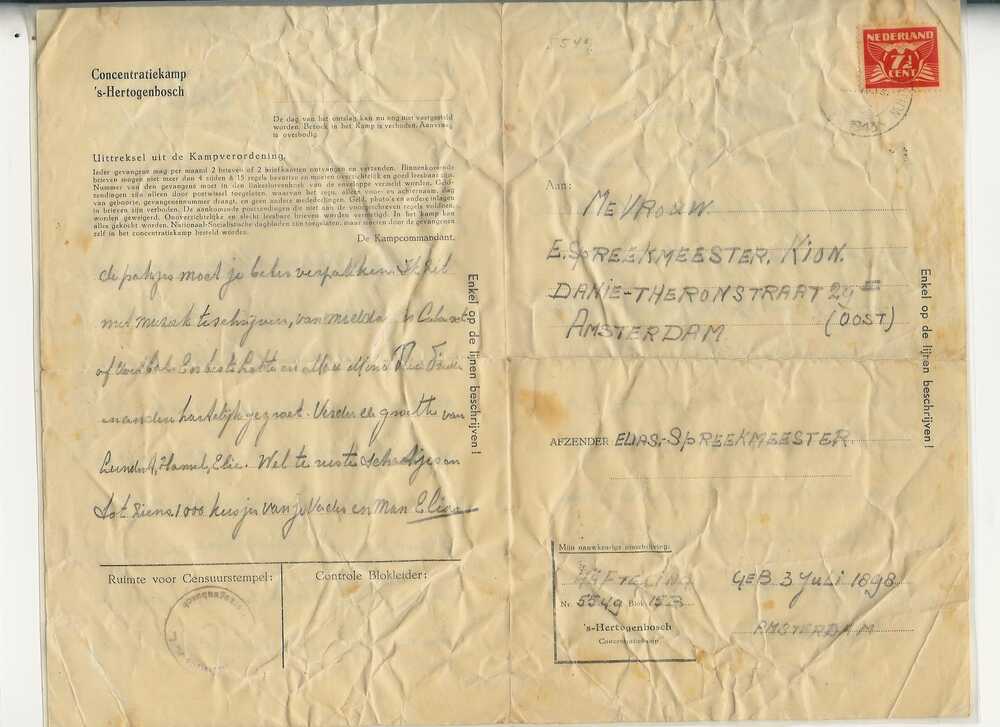 Concentratiekamp
's-Hertogenbosch
De dag van het ontslag kan nu nog niet vastgesteld
worden. Bezoek in het Kamp is verboden. Aanvraag
is overbodig.
Uittreksel uit de Kampverordening.
Ieder gevangene mag per maand 2 brieven of 2 briefkaarten ontvangen en verzenden. Binnenkomende
brieven mogen niet meer dan 4 zijden à 15 regels bevatten en moeten overzichtelijk en goed leesbaar zijn.
Nummer van den gevangene moet in den linkerbovenhoek van de enveloppe vermeld worden. Geld-
zendingen zijn alleen door postwissel toegelaten, waarvan het reçu, alleen voor- en achternaam, dag
van geboorte, gevangenennummer draagt, en geen andere mededeelingen. Geld, photo's en andere inlagen
in brieven zijn verboden. De aankomende postzendingen die niet aan de voorgeschreven regels voldoen,
worden geweigerd. Onoverzichtelijke en slecht leesbare brieven worden vernietigd. In het kamp kan
alles gekocht worden. Nationaal-Socialistische dagbladen zijn toegelaten, maar moeten door de gevangenen
zelf in het concentratiekamp besteld worden.
De Kampcommandant.
de pakjes moet je beter verpakken.
met te schrijven, van
of en Max Mina
en anden hartelijk gegroet. Verder de groeten van
Leendert, Hamel, Elie. Wel te ruste schatjes en
tot ziens 1000 kusjes van je Vader en Man Elias
Enkel op de lijnen beschrijven!
Ruimte voor Censuurstempel:
Controle Blokleider:
5549
NEDERLAND
7½
CENT
1943
Aan:
MEVROUW
E. SPREEKMEESTER, KION.
DANIE-THERONSTRAAT 29 II
AMSTERDAM (OOST)
Enkel op de lijnen beschrijven!
AFZENDER ELIAS.-SPREEKMEESTER
Mijn nauwkeurige omschrijving:
HÄFTLING GEB 3 JULI 1898
Nr. 5549 Blok 15B
's-Hertogenbosch AMSTERDAM
Concentratiekamp